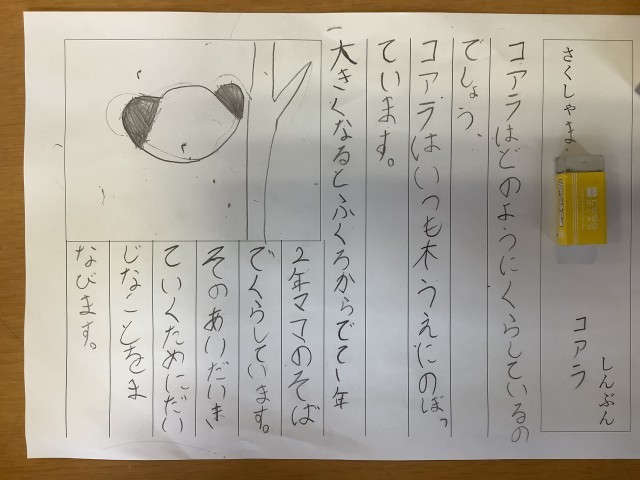 さくしゃま
コアラ
しんぶん
コアラはどのようにくらしているの
でしょう、
コアラはいつも木うえにのぼっ
ています。
大きくなるとふくろからでて1年
2年ママのそば
でくらしています。
そのあいだいき
ていくためにだい
じなことをま
なびます。